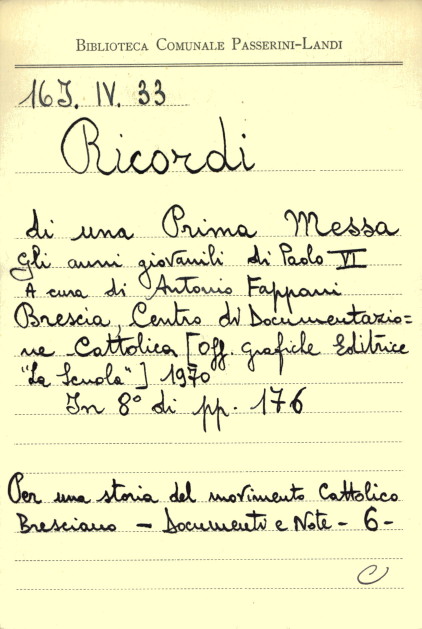 BIBLIOTECA COMUNALE PASSERINI-LANDI
16J. IV. 33
Ricordi
di una Prima Messa
Gli anni giovanili di Paolo VI
A cura di Antonio Fappani
Brescia, Centro di Documentazio=
ne Cattolica [Off. grafiche Editrice
"La Scuola"] 1970
In 8° di pp. 176
Per una storia del movimento Cattolico
Bresciano - Documenti e Note - 6 -
C